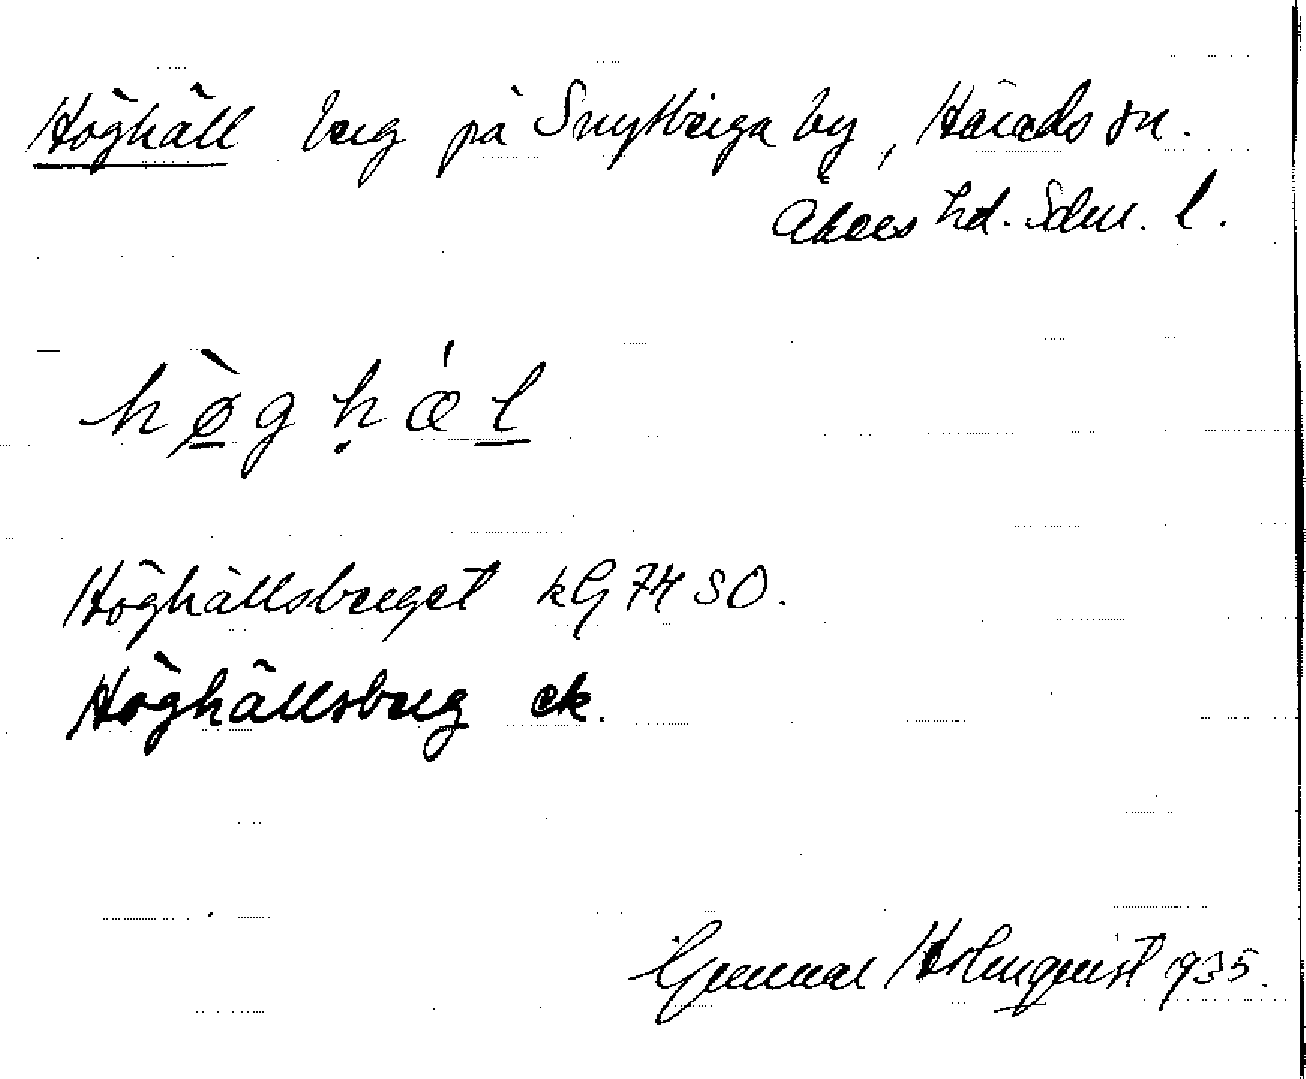 Höghäll berg på Snytberga by, Härads sn.
Åkers hd. Sdm. l.
hø̀g hǽl
Höghällsberget kG 74 SO.
Höghällsberg ek.
Gunnar Holmquist 1935.